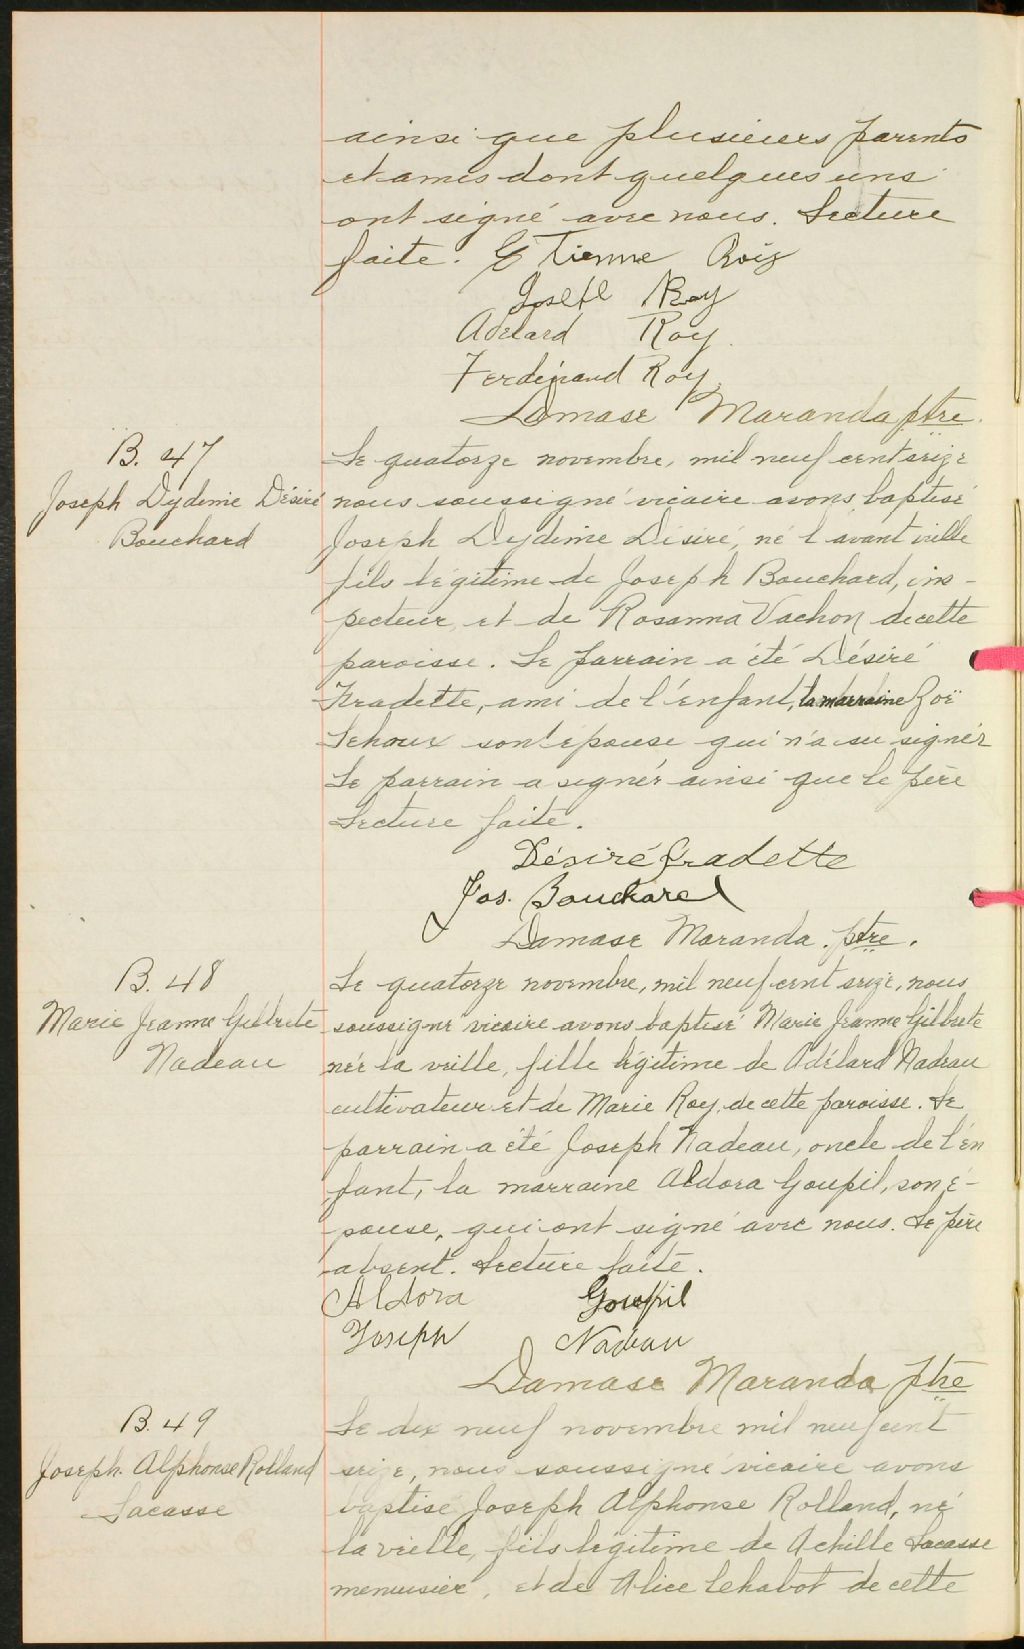 ainsi que plusieurs parents
et amis dont quelques uns
ont signé avec nous. Lecture
faite. Etienne Roy
Joseph Roy
Adelard Roy.
Ferdinand Roy
Damase Maranda ptre.
B. 47
Joseph Dydime Désiré
Bouchard
Le quatorze novembre, mil neuf cent seize
nous soussigné vicaire avons baptisé
Joseph Dydime Désiré, né l'avant veille
fils légitime de Joseph Bouchard, ins-
pecteur, et de Rosanna Vachon de cette
paroisse. Le parrain a été Désiré
Fradette, ami de l'enfant, la marraine Zoë
Lehoux son épouse qui n'a su signer
Le parrain a signé ainsi que le père
Lecture faite.
Désiré Fradette
Jos. Bouchard
Damase Maranda. ptre.
B. 48
Marie Jeanne Gilberte
Nadeau
Le quatorze novembre, mil neuf cent seize, nous
soussigné vicaire avons baptisé Marie Jeanne Gilberte
née la veille, fille légitime de Adélard Nadeau
cultivateur et de Marie Roy, de cette paroisse. Le
parrain a été Joseph Nadeau, oncle de l'en
fant, la marraine Aldora Goupil, son é-
pouse, qui ont signé avec nous. Le père
absent. Lecture faite.
Aldora Goupil
Joseph Nadeau
Damase Maranda ptre
B. 49
Joseph. Alphonse Rolland
Lacasse
Le dix neuf novembre mil neuf cent
seize, nous soussigné vicaire avons
baptisé Joseph Alphonse Rolland, né
la veille, fils légitime de Achille Lacasse
menuisier, et de Alice Chabot de cette